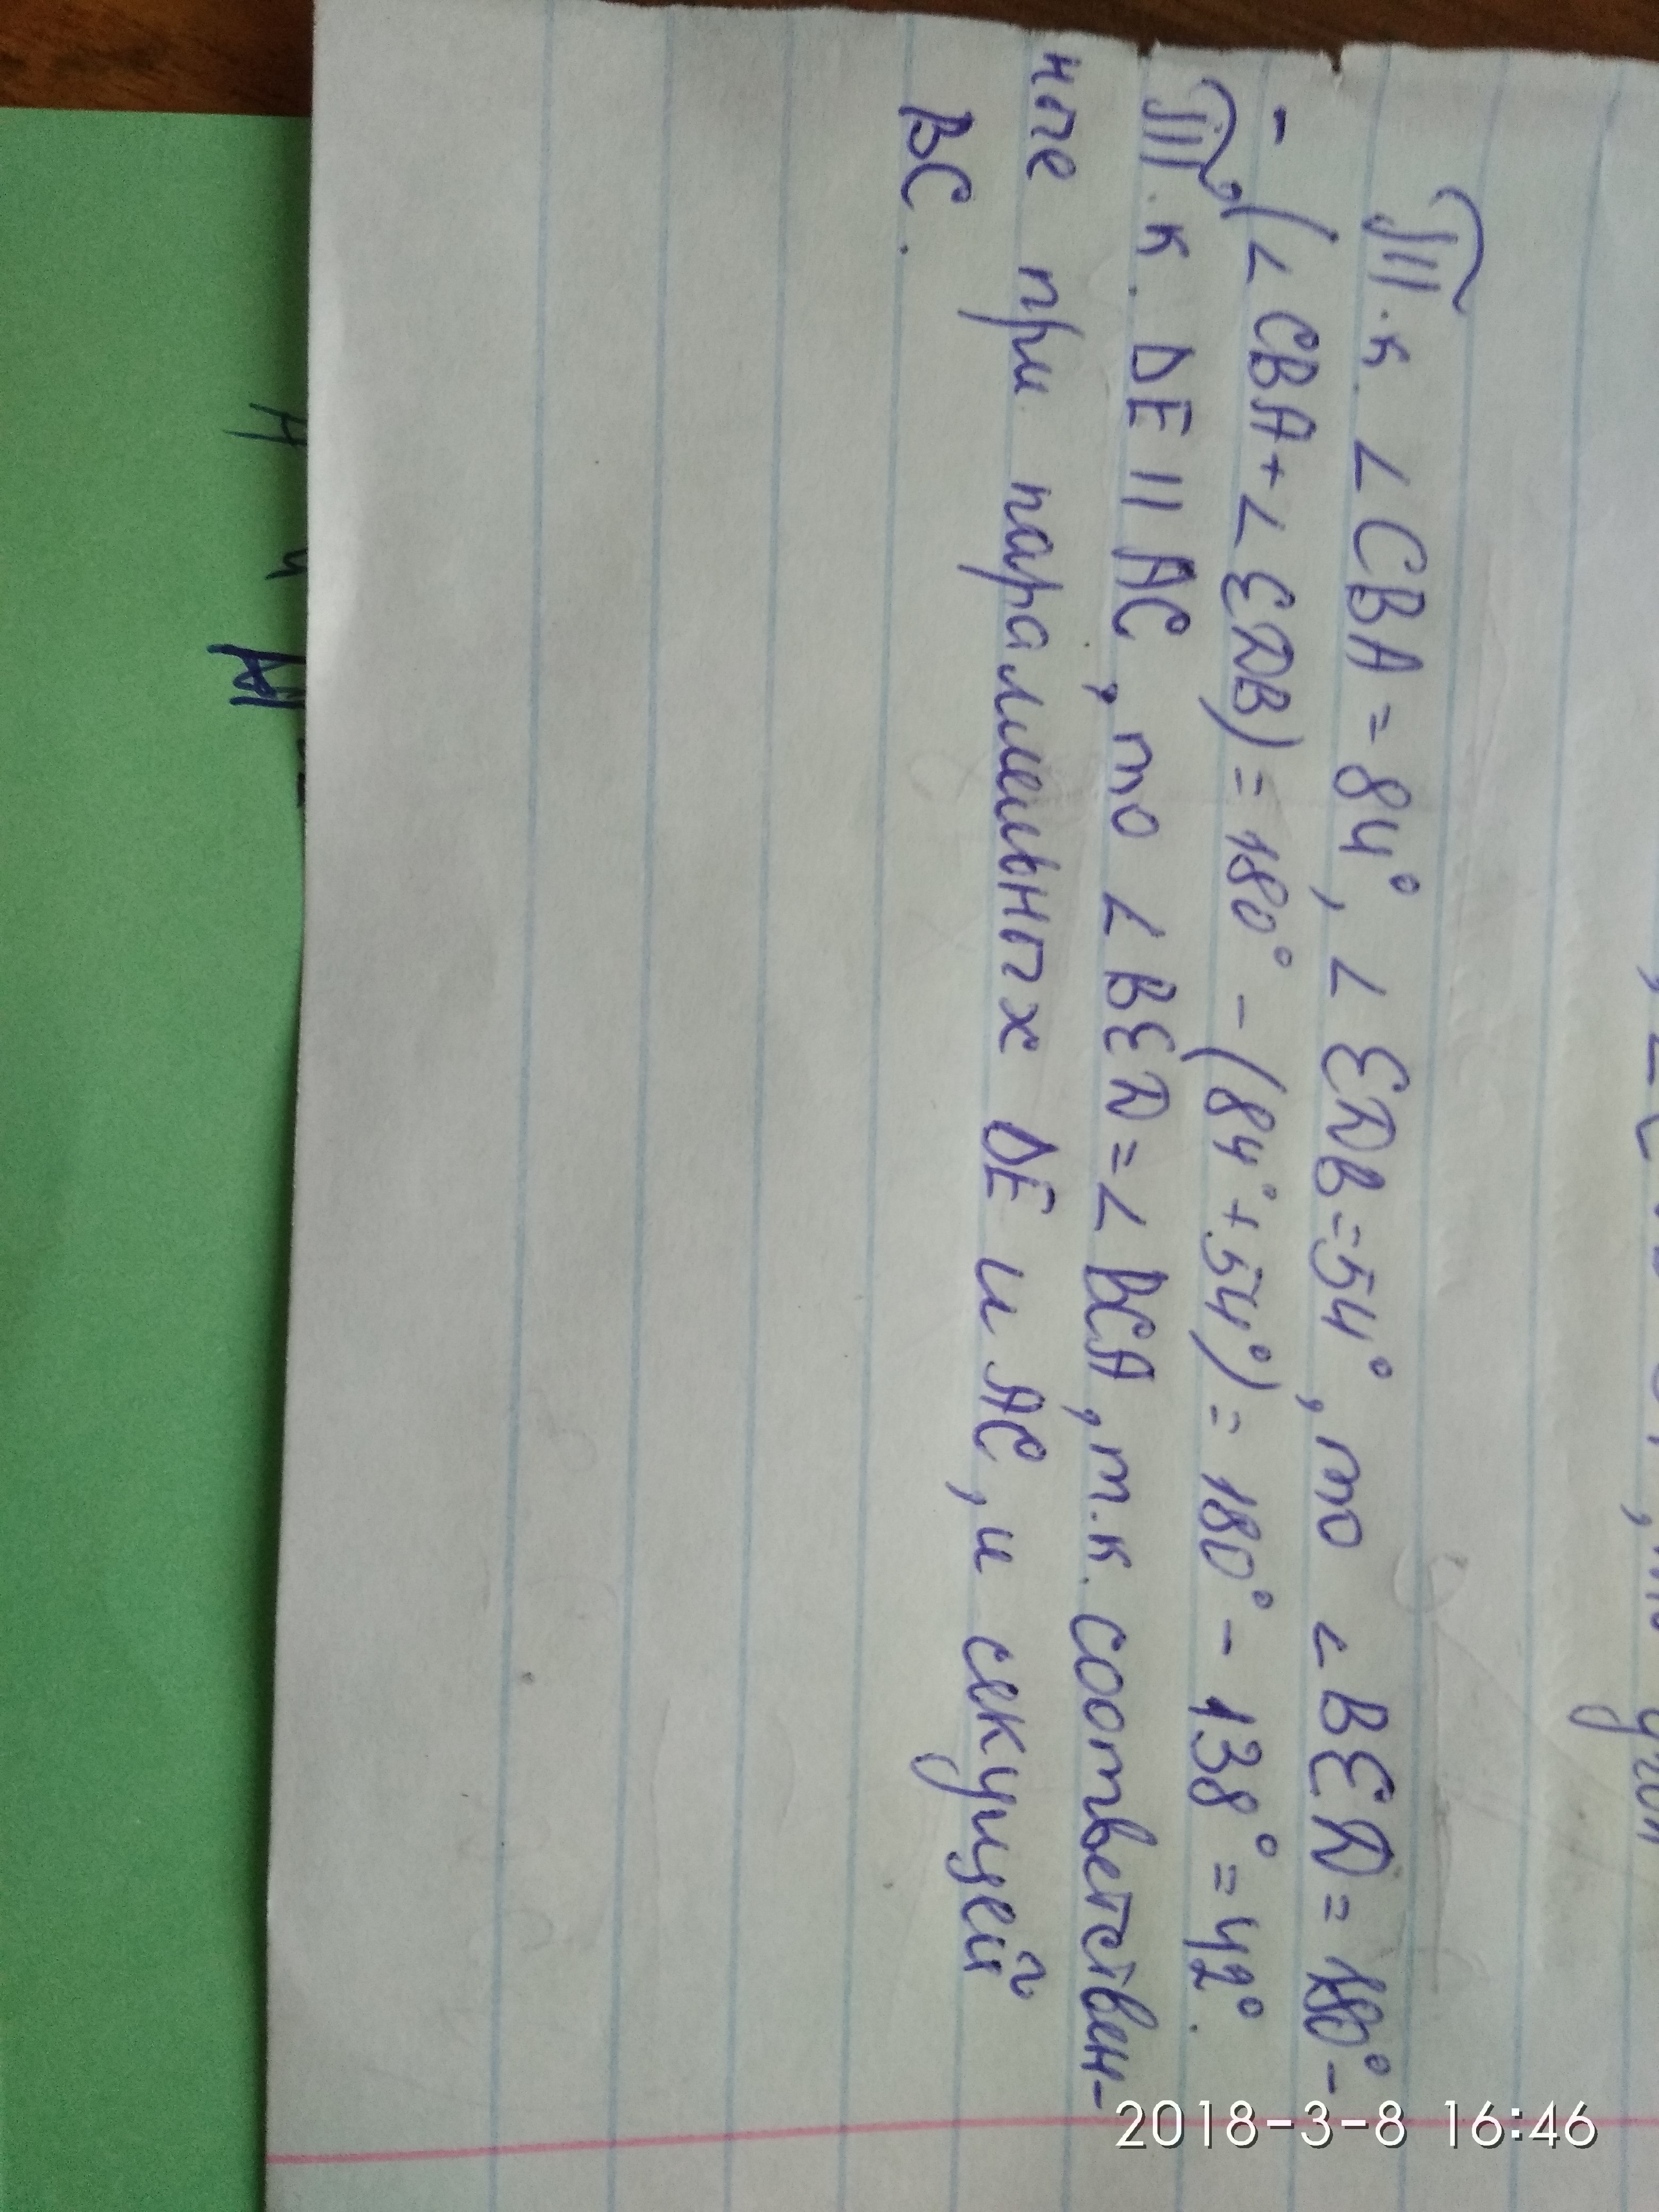 Т.к. ∠CBA=84°, ∠EDB=54°, то ∠BED=180°-
-(∠CBA+∠EDB)=180°-(84°+54°)=180°-138°=42°.
Т.к. DE || AC, то ∠BED=∠BCA, т.к. соответствен-
ные при параллельных DE и AC, и секущей
BC.
2018-3-8 16:46